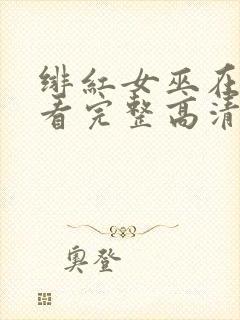 绯红女巫在
看完整高清
奥登